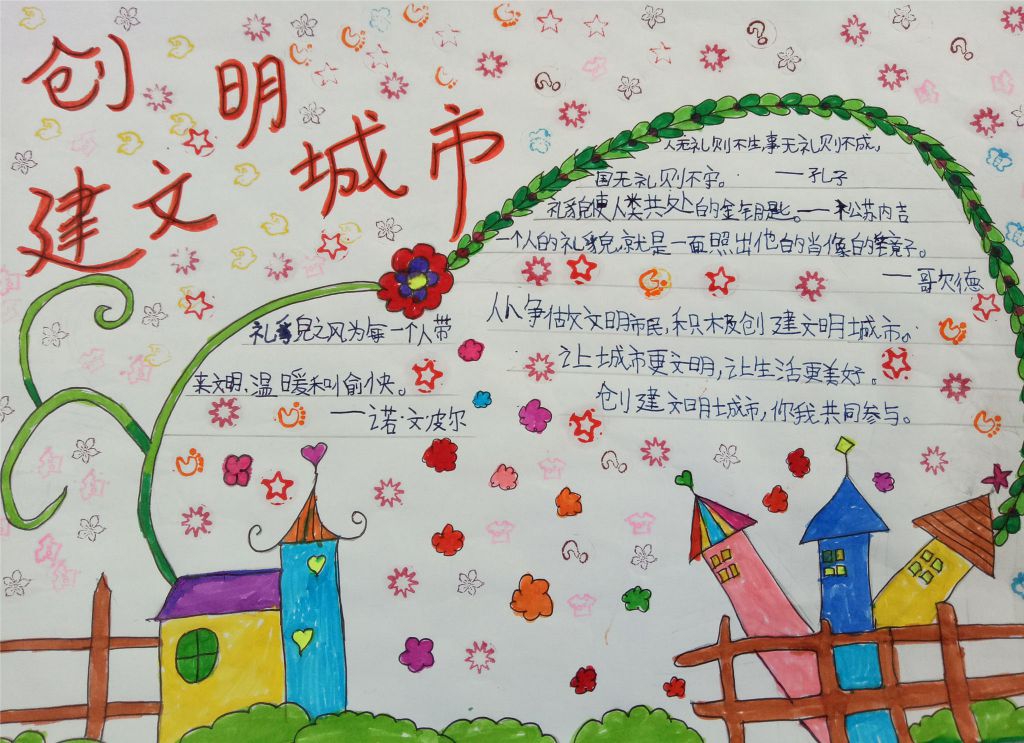 创建文明城市
人无礼则不生,事无礼则不成,
国无礼则不宁。 —孔子
礼貌使人类共处的金钥匙。—松苏内吉
一个人的礼貌,就是一面照出他的肖像的镜子。
—哥尔德
礼貌之风为每一个人带
来文明,温暖和愉快。
—诺·文·波尔
人人争做文明市民,积极创建文明城市。
让城市更文明,让生活更美好。
创建文明城市,你我共同参与。